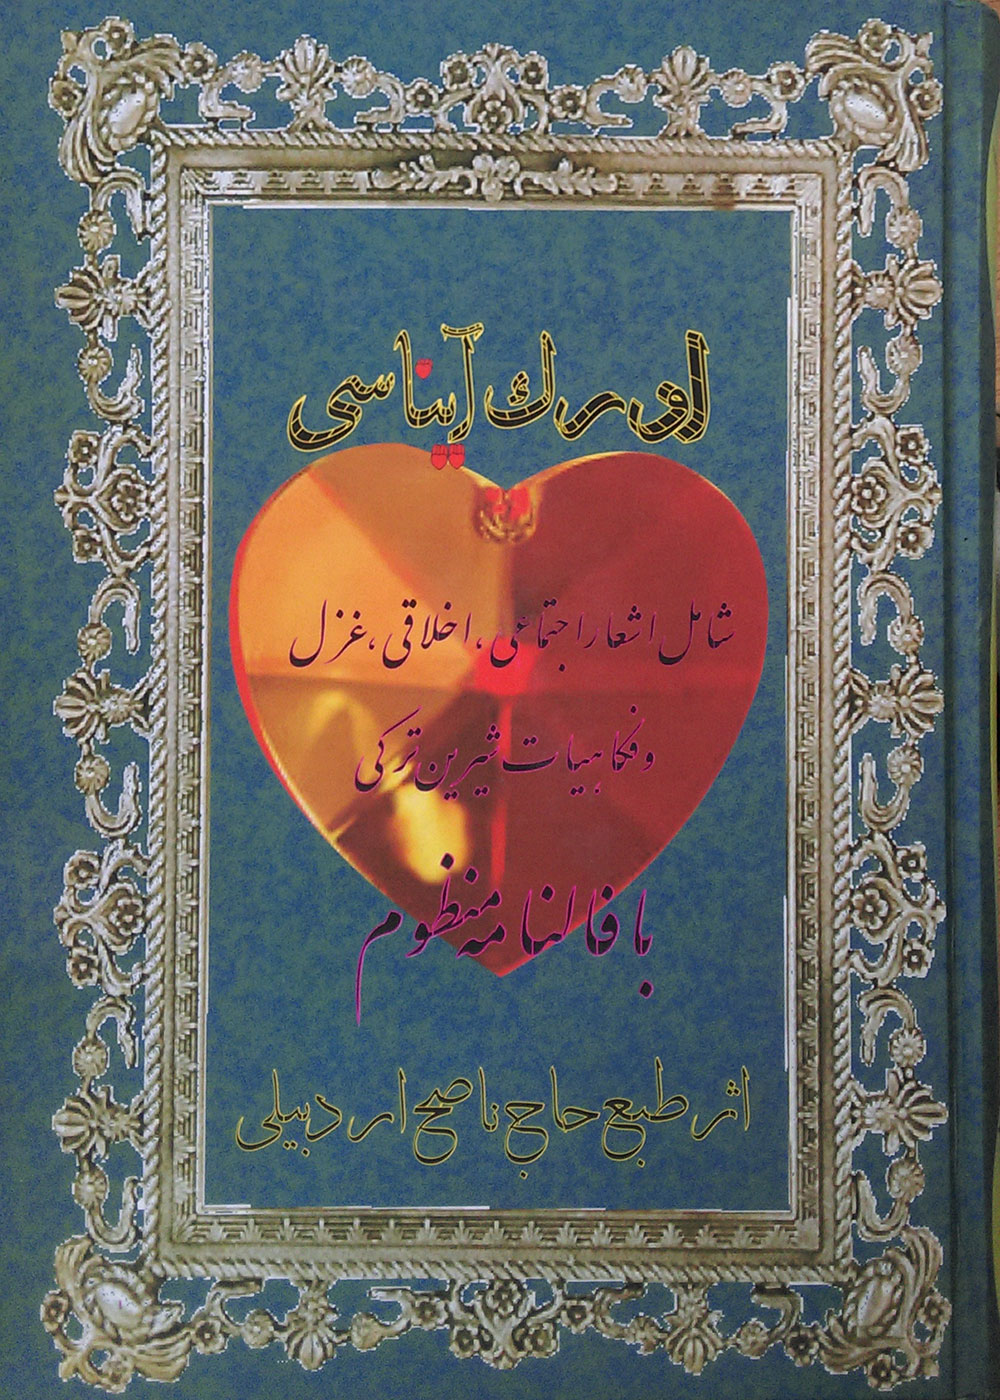 اورك آیناسی
شامل اشعار اجتماعی، اخلاقی، غزل
و فکاهیات شیرین ترکی
با فالنامه منظوم
اثر طبع حاج ناصح اردبیلی